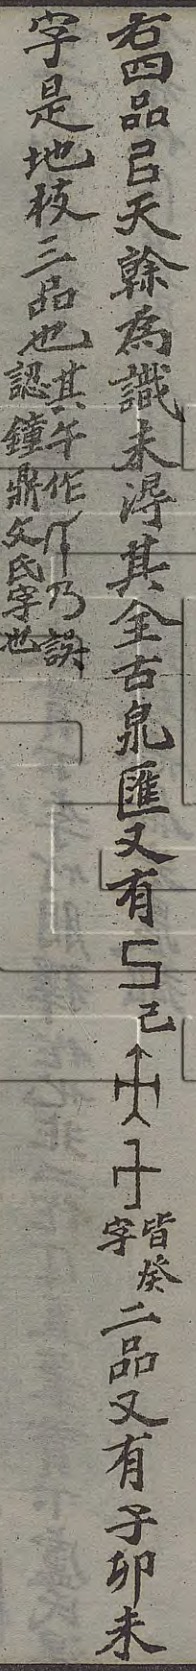 右四品㠯天榦為識未淂其全古泉匯又有己己皆癸字二品又有子卯未
字是地枝三品也其午作乃誤認鐘鼎文氏字也